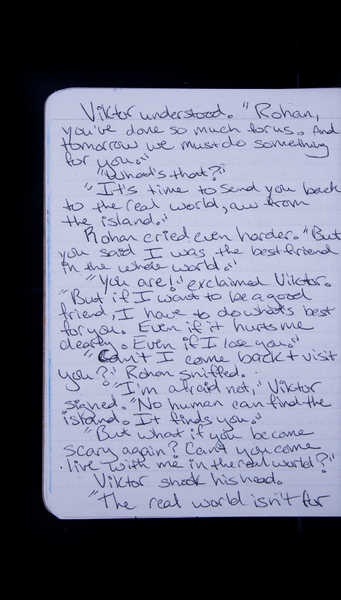 Viktor understood. "Rohan,
you've done so much for us. And
tomorrow we must do something
for you."
"What's that?"
"It's time to send you back
to the real world, aw from
the island."
Rohan cried even harder. "But
you said I was the best friend
in the whole world."
"You are!" exclaimed Viktor.
"But if I want to be a good
friend, I have to do what's best
for you. Even if it hurts me
dearly. Even if I lose you."
"Can't I come back + visit
you?" Rohan sniffed.
"I'm afraid not," Viktor
signed. "No human can find the
island. It finds you."
"But what if you become
scary again? Can't you come
live with me in the real world?"
Viktor shook his head.
"The real world isn't for